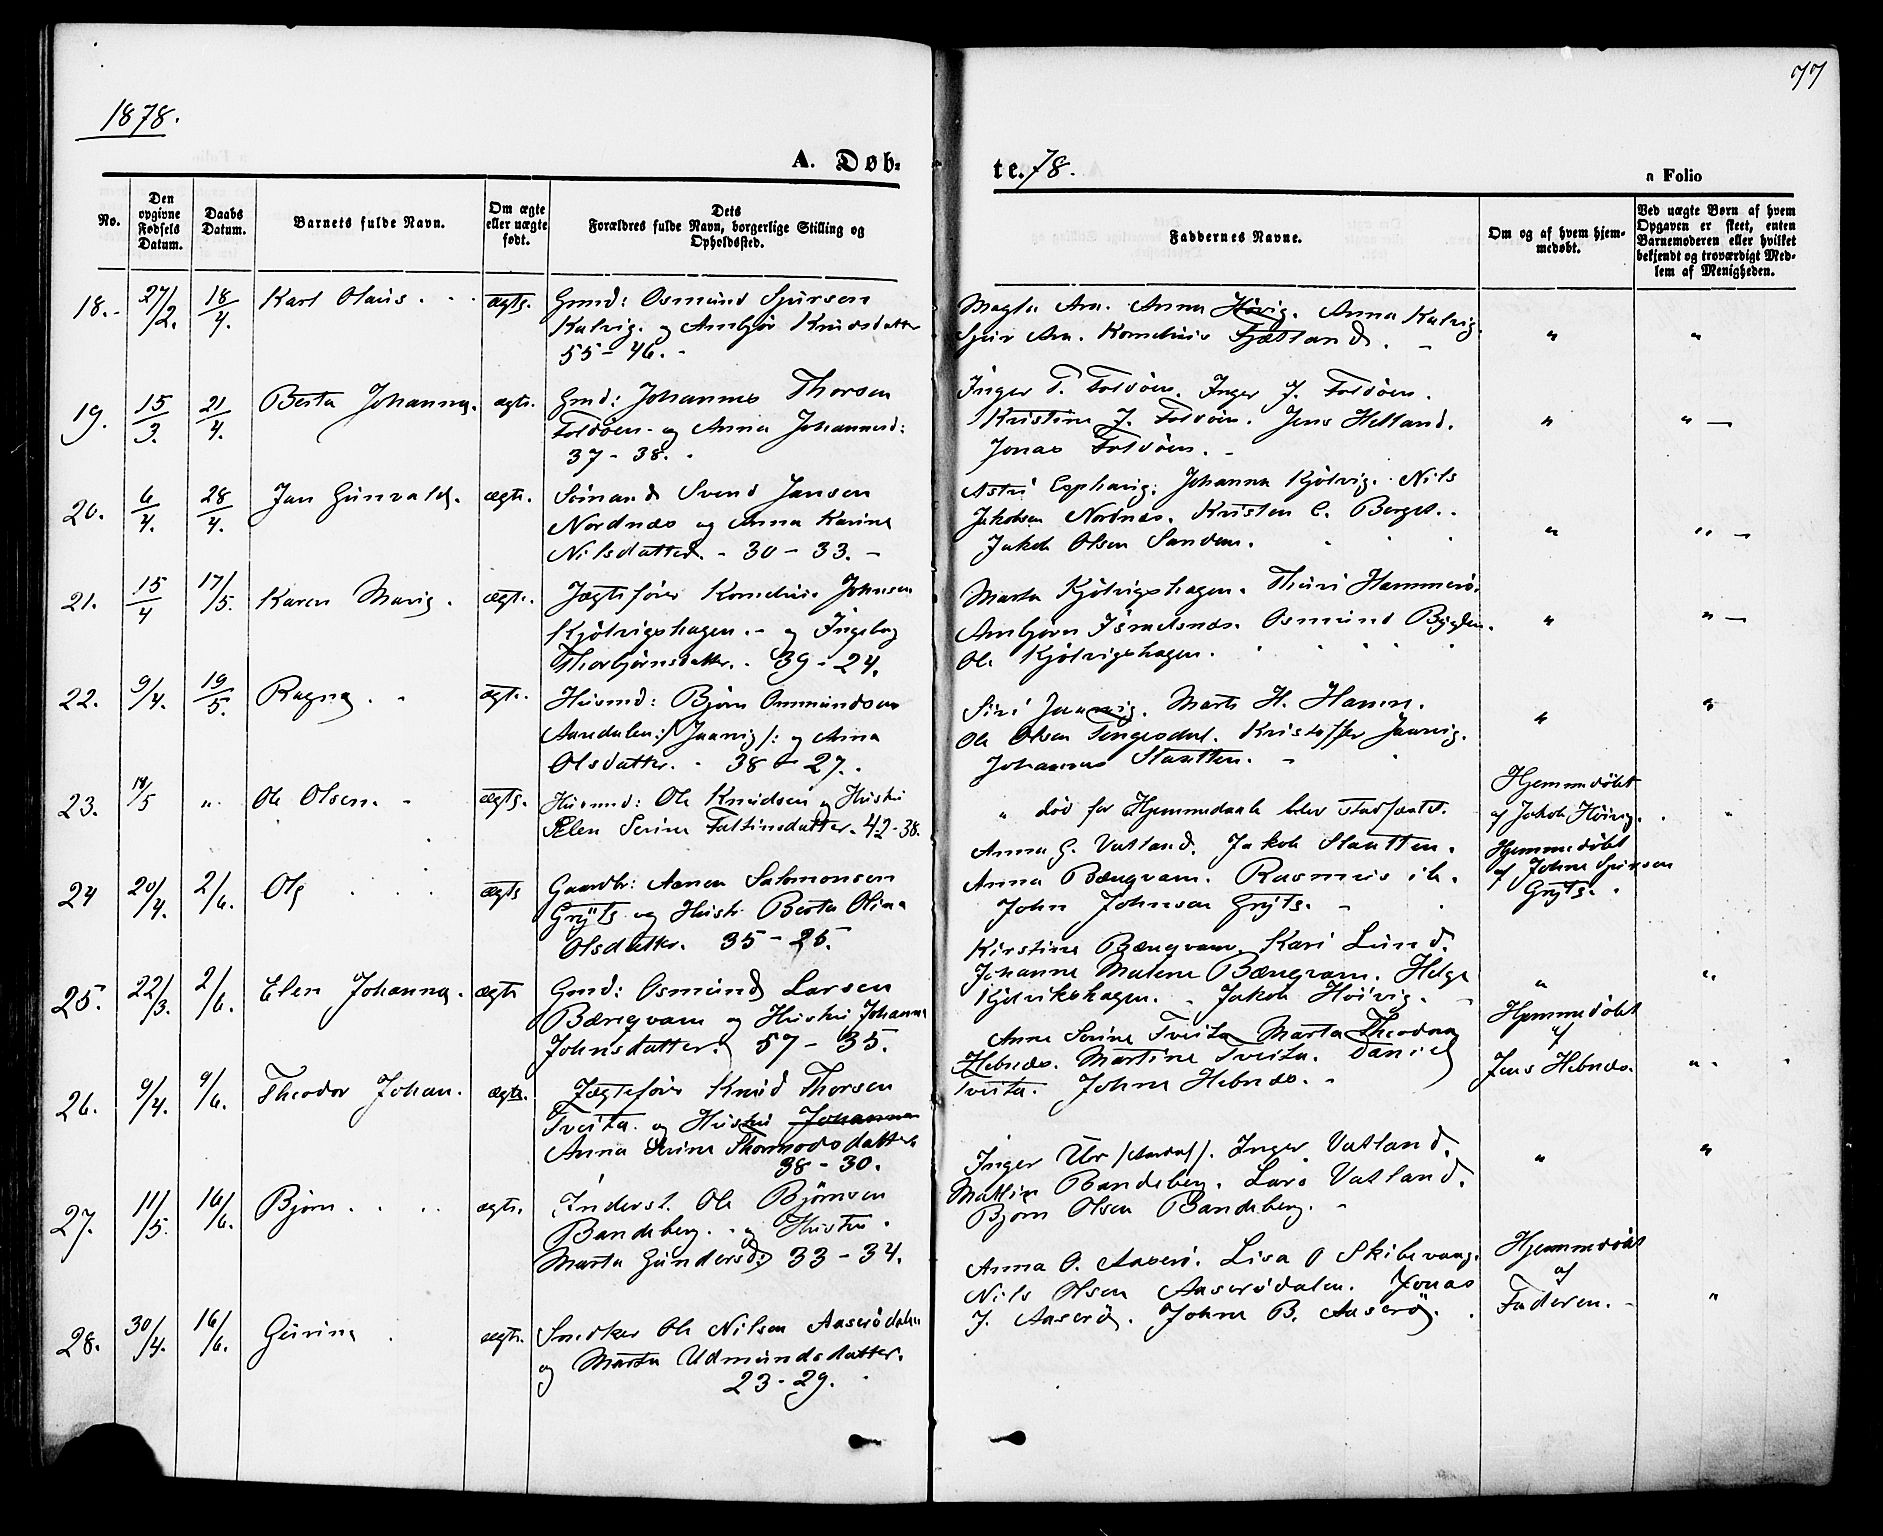 1878.
77
A. Døb-
te. 78.
a Folio
No.
Den opgivne Fødsels Datum.
Daabs Datum.
Barnets fulde Navn.
Om ægte eller uægte født.
Dets Forældres fulde Navn, borgerlige Stilling og Opholdssted.
Faddernes Navne.
Om og af hvem hjemmedøbt.
Ved uægte Børn af hvem Opgaven er skeet, enten Barnemoderen eller hvilket bekjendt og troværdigt Medlem af Menigheden.
18. 27/2. 18/4. Karl Olaus. ægte. Gmd: Osmund Sjursen
Kalvig. og Ambjør Knudsdatter
55 - 46. -
Magla Ara. Anna Høvig. Anna Kalvig.
Sjur Ara. Kornelius Fjætland. "  "
19. 15/3. 21/4. Berta Johanna. ægte. Gmd: Johannes Thorsen
Foldøen. og Anna Johannesd:
37 - 38. .
Inger T. Foldøen. Inger J. Foldøen.
Kristine J. Foldøen. Jens Helland. "  " —
Jonas Foldøen. -
20. 6/4. 28/4. Jan Gunvald. ægte. Sömand Svend Jansen
Nordnæs og Anna Karine
Nilsdatter. - 30 - 33. -
Astri Esphavig. Johanna Kjölvig. Nils
Jakobsen Nordnæs. Kristen C. Berget.
Jakob Olsen Sanden. "  " —
21. 15/4 17/5. Karen Marie. ægte. Jægtefører Kornelius Johnsen
Kjölvigshagen. - og Ingeborg
Thorbjörnsdatter. - 39 - 24.
Marta Kjölvigshagen. Thuri Hammerö.
Ambjörn Israelsnæs. Osmund Bygden. "  " —
Ole Kjölvigshagen.
22. 9/4. 19/5. Ragna. ægte. Husmd: Bjørn Ommundsen
Aandalen :/ Jaavig /: og Anna
Olsdatter. - 38 - 27. .
Siri Jaavig. Marta H. Hamre.
Ole Olsen Tengesdal. Kristoffer Jaavig. "  "
Johannes Slaatten. -
23. 18/5 " Ole Olsen. - ægte. Husmd: Ole Knudsen og Hustru
Elen Serine Faltinsdatter. 42 - 38.
" död før Hjemmedaab blev stadfæstet.
Hjemmedöbt
af Jakob Höivig. "
24 20/4. 2/6. Ole ægte Gaardbr: Aanen Salomonsen
Gryte og Hustr. Berta Olina
Olsdatter. 35 - 25.
Anna G. Vatland. Jakob Slaatten.
Anna Bængvam. Rasmus ib.
John Johnsen Gryte. -
Hjemmedöbt
af Johne Sjursen
Gryte. .
25. 22/3. 2/6. Elen Johanna. ægte Gmd: Osmund Larsen
Bængvam og Hustru Johanna
Johnsdatter. 57 - 35.
Kirstine Bængvam. Kari Lund.
Johanne Malene Bængvam. Helge
Kjölvikshagen. . Jakob Höivig. "  "
26. 9/4. 9/6. Theodor Johan. ægte. Jægtefører Knud Thorsen
Tveita. og Hustru Johanna
Anna Serine Thormodsdatter.
38 - 30.
Anne Serine Tveita Marta Theodora
Hebnæs. Martine Tveita. Daniel
Tveita. Johne Hebnæs. -
Hjemmedöbt
af
Jens Hebnæs. "
27. 11/5. 16/6. Bjørn. ægte. Inderst. Ole Björnsen
Bandeberg. - og Hustru.
Marta Gundersd: 33 - 34.
Inger Ur /Aardal/. Inger Vatland.
Mallin Bandeberg. Lars Vatland.
Bjørn Olsen Bandeberg. - "  "
28. 30/4. 16/6. Gurina ægte. Snedker Ole Nilsen Aaserödalen
og Marta Udmundsdatter.
23 - 29.
Anna O. Aaserö. Lisa O Skibevaag.
Nils Olsen Aaserödalen. Jonas
J. Aaserö. Johne B. Aaserö.
Hjemmedöbt
af
Faderen. - "